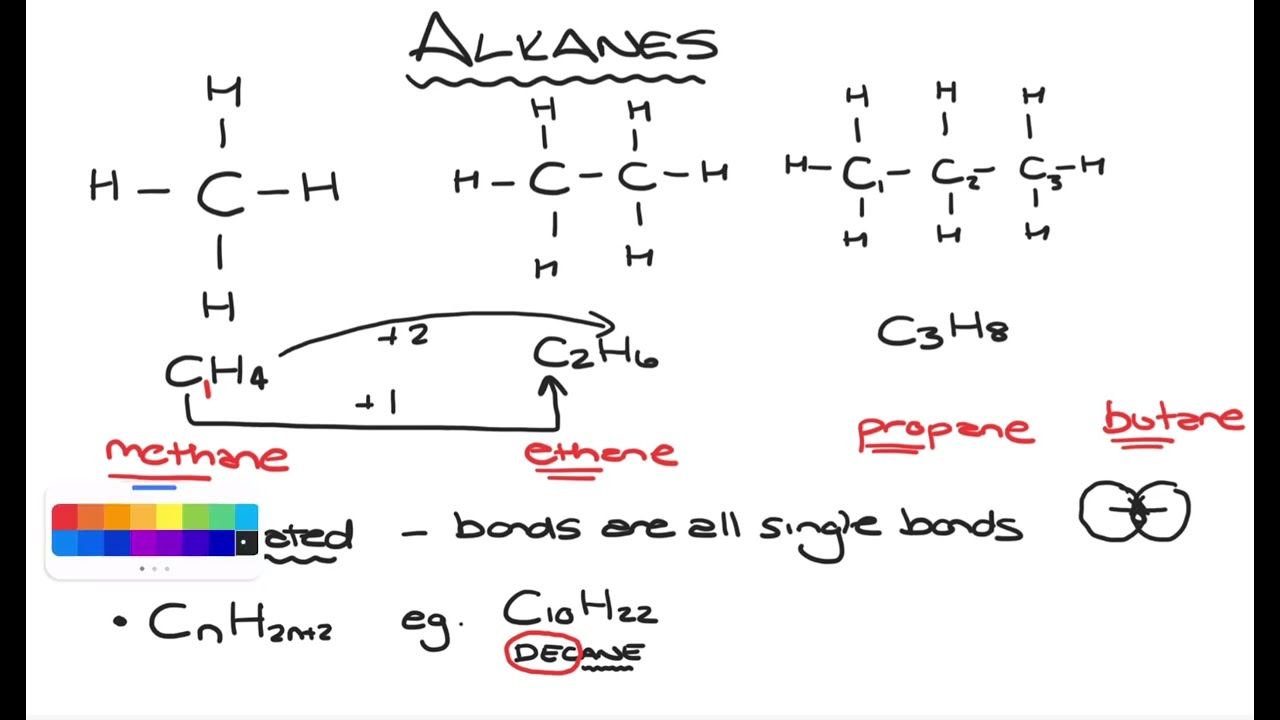 ALKANES
H H H H H H
H - C - H H - C - C - H H - C1 - C2 - C3 - H
H H H H H H
+2
C1H4 C2H6 C3H8
+1
methane ethane propane butane
ated - bonds are all single bonds
• CnH2n+2 eg. C10H22
DECANE